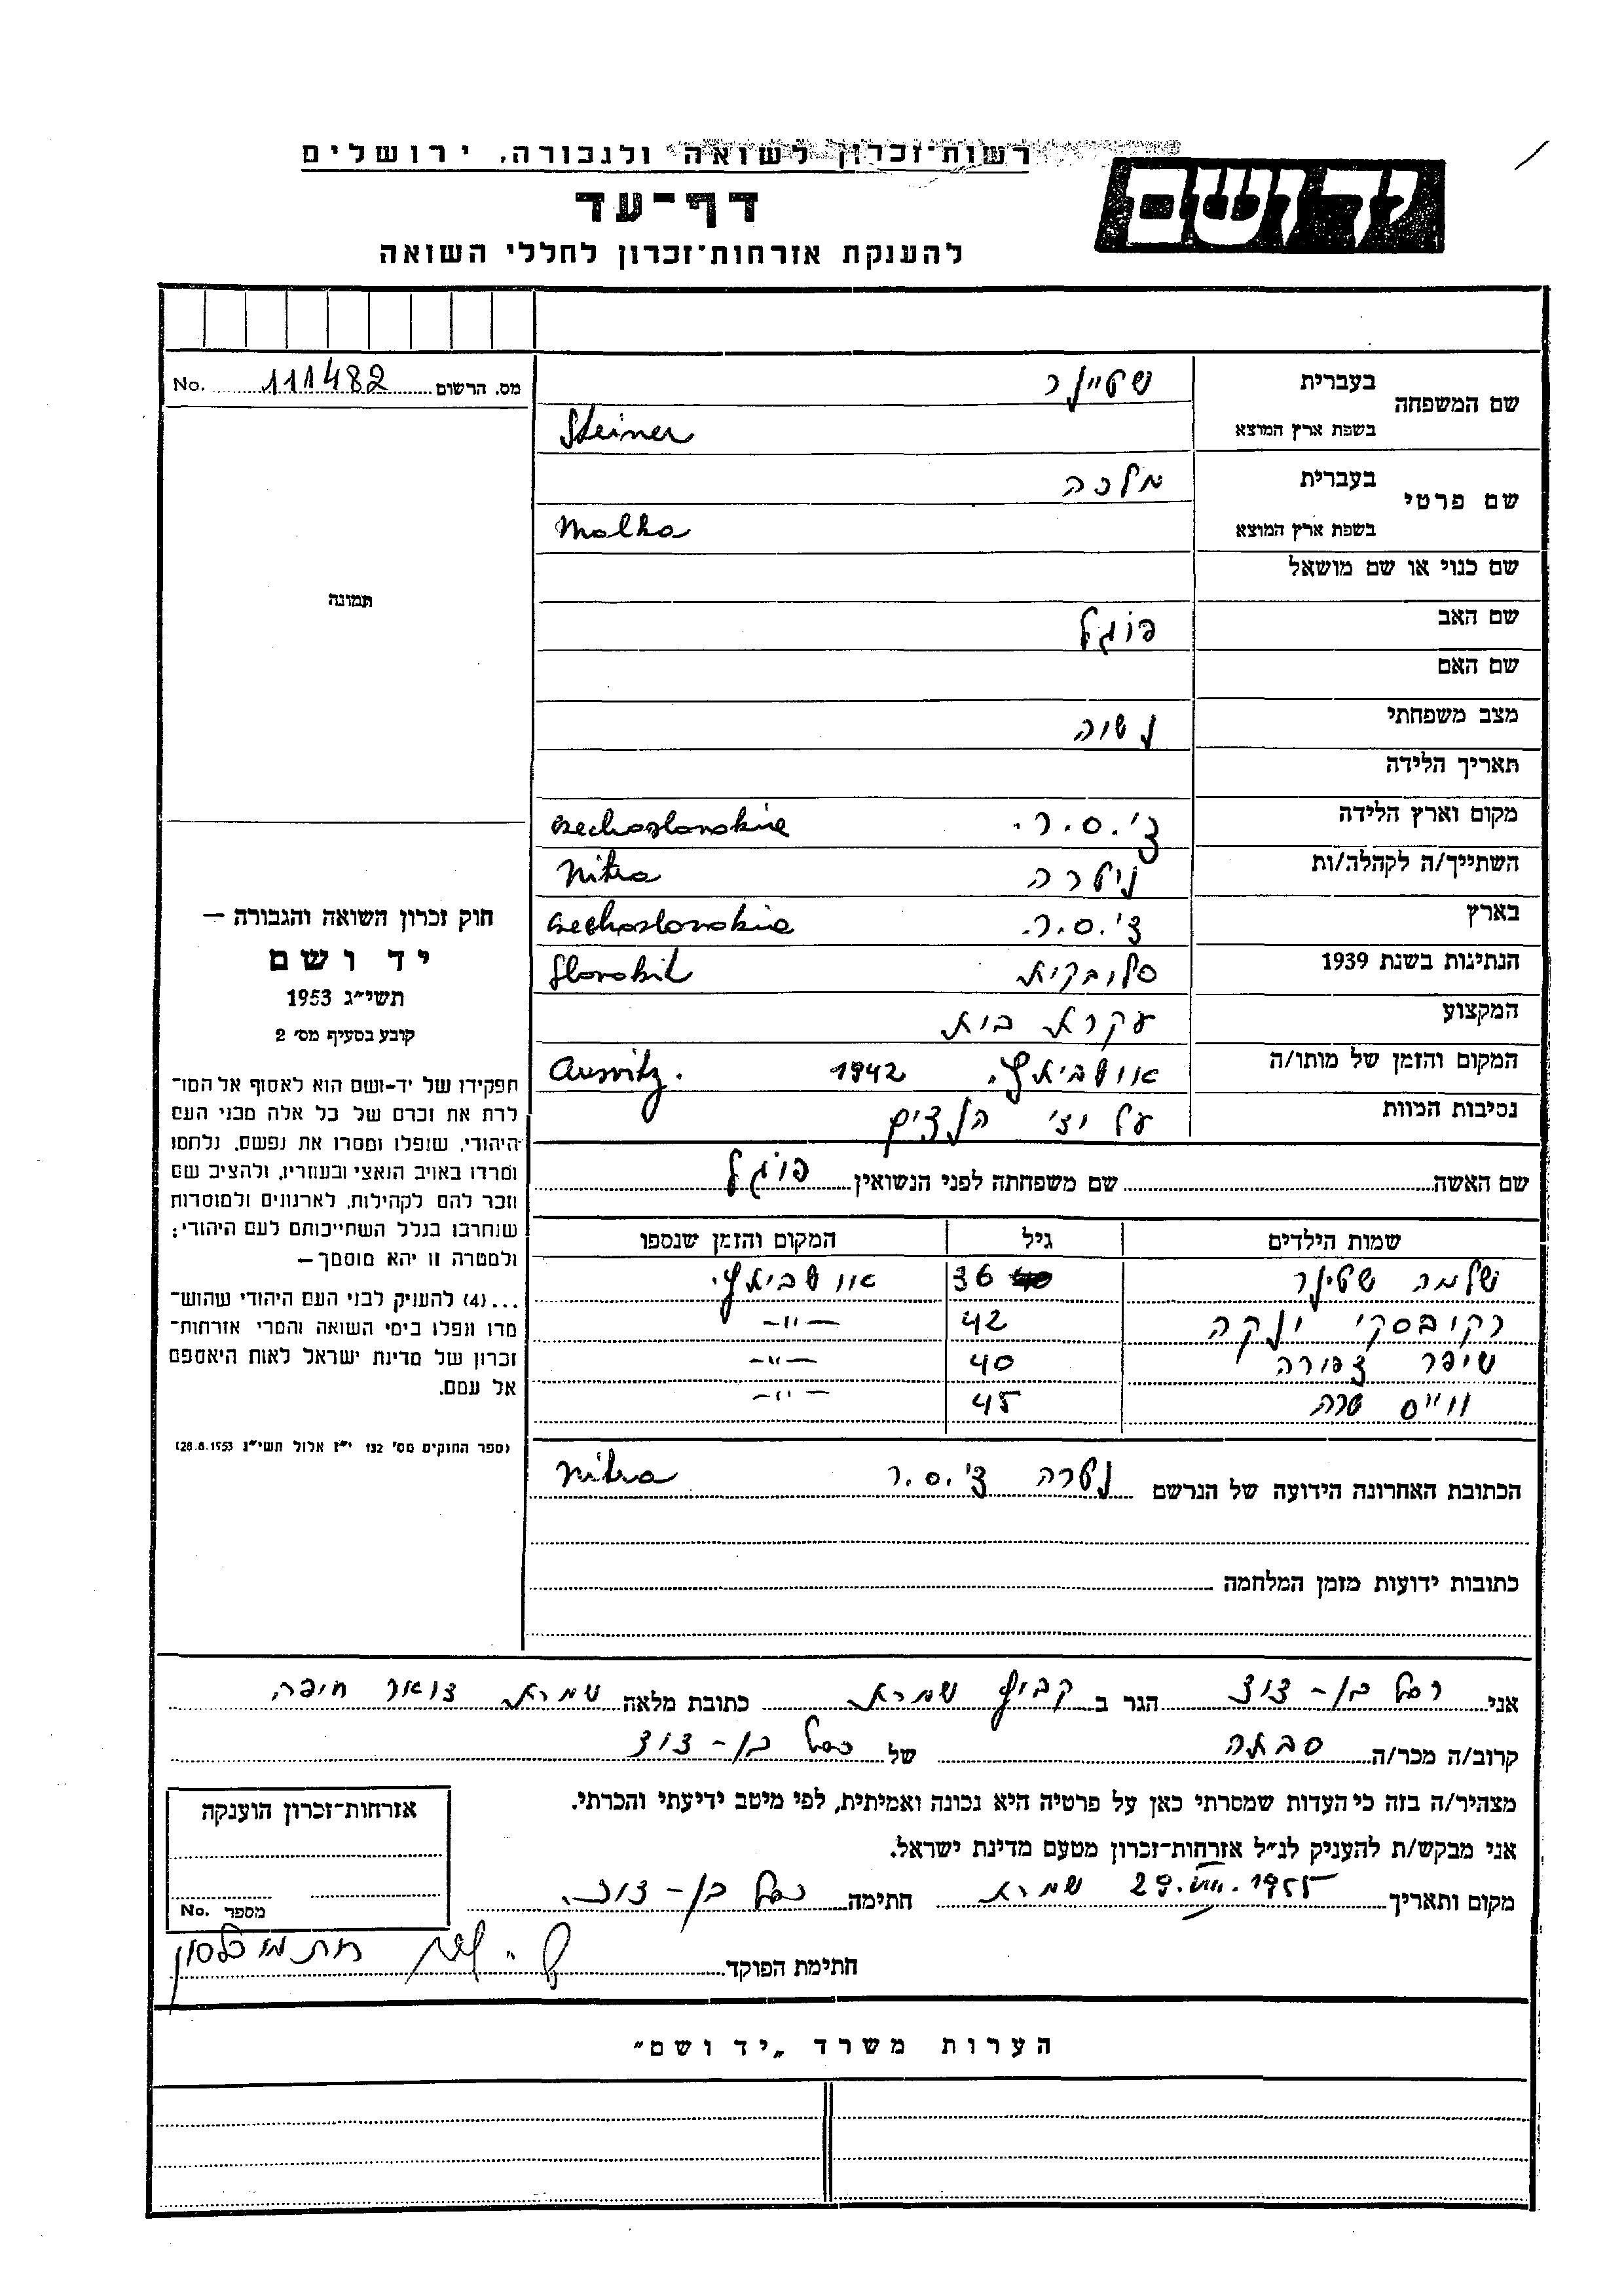 רשות־זכרון לשואה ולגבורה, ירושלים
יד ושם
דף־עד
להענקת אזרחות־זכרון לחללי השואה
מס. הרשום 111482 No.
שם המשפחה
בעברית שטיינר
בשפת ארץ המוצא Steiner
שם פרטי
בעברית מלכה
בשפת ארץ המוצא Malka
שם כנוי או שם מושאל
שם האב פוגל
שם האם
מצב משפחתי נשוה
תאריך הלידה
מקום וארץ הלידה צ'.ס.ר. czechoslovakia
השתייך/ה לקהלה/ות ניטרה Nitra
בארץ צ'.ס.ר. czechoslovakia
הנתינות בשנת 1939 סלובקית
המקצוע עקרת בית
המקום והזמן של מותו/ה אושביץ. 1942 Ausvitz.
נסיבות המוות על ידי הנצים
שם האשה שם משפחתה לפני הנשואין פוגל
שמות הילדים גיל המקום והזמן שנספו
שלמה שטינר 36 אושביץ.
רקובסקי ינקה 42 —״—
שיפר צפורה 40 —״—
ווייס שרה 45 —״—
הכתובת האחרונה הידועה של הנרשם נטרה צ'.ס.ר Nitra
כתובות ידועות מזמן המלחמה
תמונה
חוק זכרון השואה והגבורה —
יד ושם
תשי״ג 1953
קובע בסעיף מס׳ 2
תפקידו של יד-ושם הוא לאסוף אל המו־
לדת את זכרם של כל אלה מבני העם
היהודי, שנפלו ומסרו את נפשם, נלחמו
ומרדו באויב הנאצי ובעוזריו, ולהציב שם
וזכר להם לקהילות, לארגונים ולמוסדות
שנחרבו בגלל השתייכותם לעם היהודי;
ולמטרה זו יהא מוסמך—
...(4) להעניק לבני העם היהודי שהוש־
מדו ונפלו בימי השואה והמרי אזרחות־
זכרון של מדינת ישראל לאות היאספם
אל עמם.
(ספר החוקים מס׳ 132 י״ז אלול תשי״ג 28.8.1953)
אני רחל בן-צוי הגר ב קבוץ שמרת כתובת מלאה שמרת דואר חיפה
קרוב/ה מכר/ה סבתה של רחל בן-צוי
מצהיר/ה בזה כי העדות שמסרתי כאן על פרטיה היא נכונה ואמיתית, לפי מיטב ידיעתי והכרתי.
אני מבקש/ת להעניק לנ״ל אזרחות־זכרון מטעם מדינת ישראל.
מקום ותאריך שמרת 29.VIII.1955 חתימה רחל בן-צוי
אזרחות־זכרון הוענקה
מספר No.
חתימת הפוקד
הערות משרד „יד ושם״